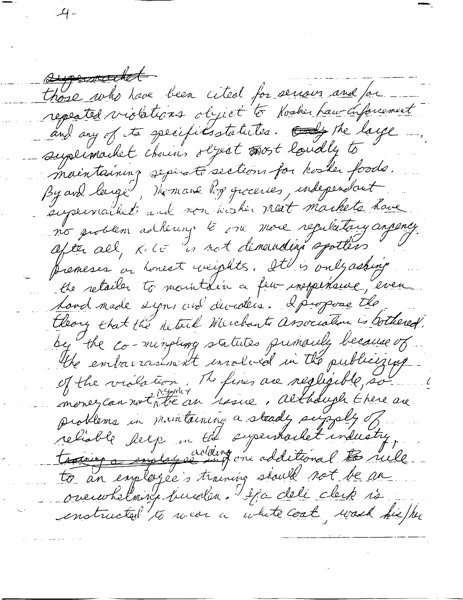 -4-
supermarket
those who have been cited for serious and/or
repeated violations object to Kosher Law Enforcement
and any of its specific statutes. Only The large
supermarket chains object most loudly to
maintaining seperate sections for kosher foods.
By and large, Mom and Pop groceries, independant
supermarkets and non kosher meat markets have
no problem adhering to one more regulatory angency.
After all, KLE is not demanding spotless
premeses or honest weights. It is only asking
the retailer to maintain a few inexpensive, even
hand made signs and dividers. I propose the
theory that the Retail Merchants Association is bothered
by the co-mingling statutes primarily because of
the embarrasment involved in the publicizing
of the violation. The fines are negligible, so
money can not really be an issue. Although there are
problems in maintaining a steady supply of
reliable help in the supermarket industry,
training a employee adding one additional rule
to an employee's training should not be an
overwhelming burden. If a deli clerk is
instructed to wear a white coat, wash his/her